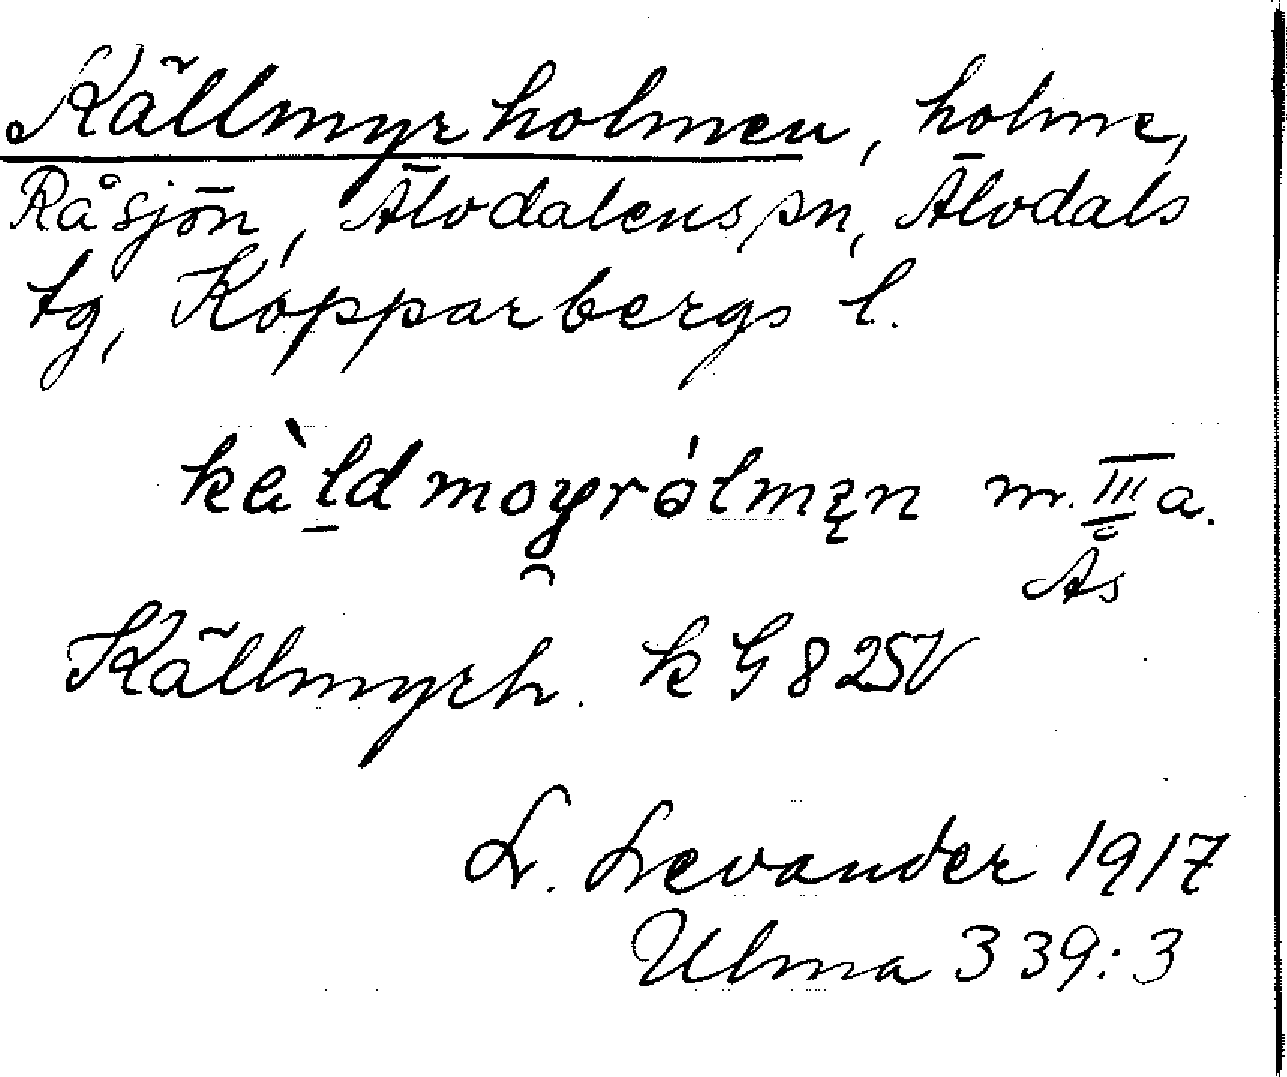 Källmyrholmen, holme,
Råsjön, Älvdalens sn, Älvdals
tg, Kopparbergs l.
kèḻdmoy̑rólmęn m. III a.
Ås
Källmyrh. k G 8 25V
L. Levander 1917
Ulma 339:3